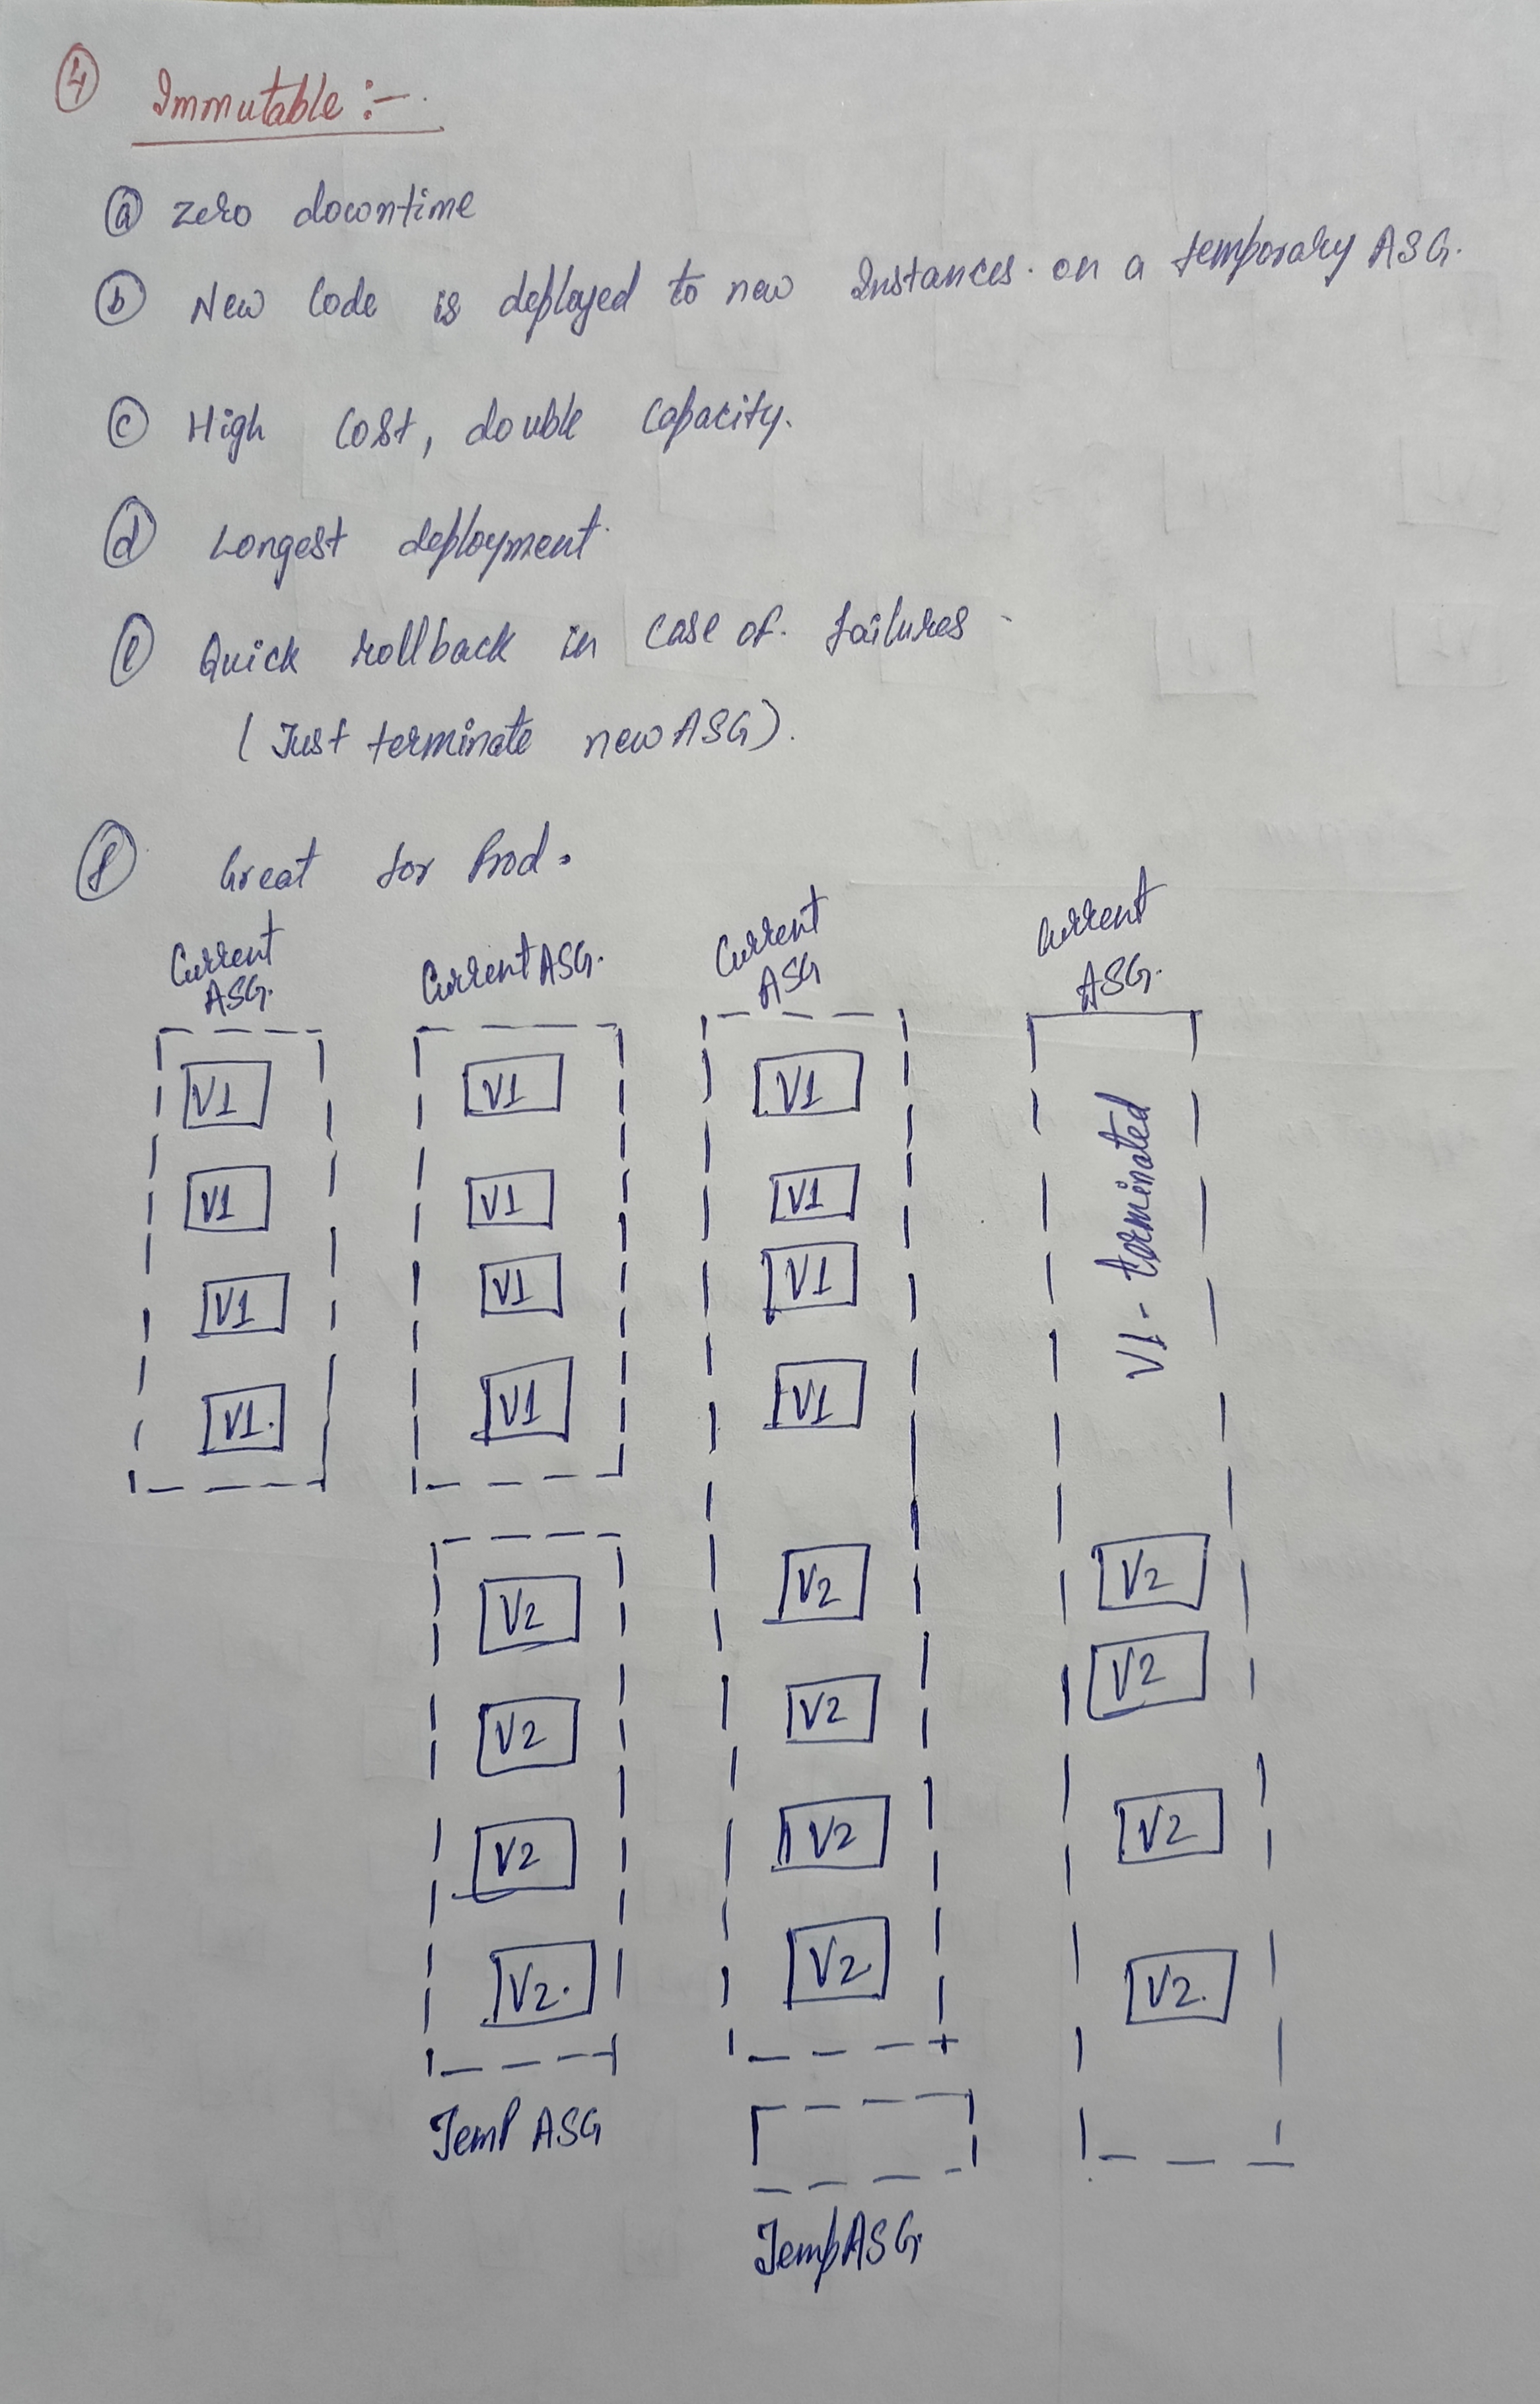 ④ Immutable :-.
ⓐ Zero downtime
ⓑ New Code is deployed to new Instances. on a temporary ASG.
ⓒ High Cost, double Capacity.
ⓓ Longest deployment.
ⓔ Quick rollback in case of. failures -
( Just terminate new ASG).
ⓕ Great for Prod.
Current
ASG.
V1
V1
V1
V1.
Current ASG.
V1
V1
V1
V1
V2
V2
V2
V2.
Temp ASG
Current
ASG
V1
V1
V1
V1
V2
V2
V2
V2
Temp ASG.
Current
ASG.
V1 - terminated
V2
V2
V2
V2.